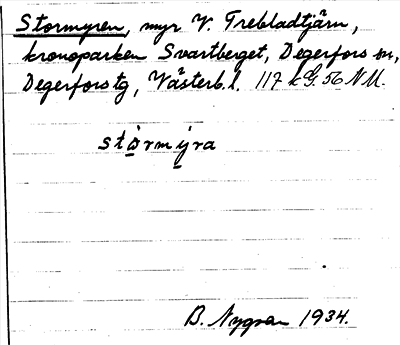 Stormyren, myr V. Trebladtjärn,
kronoparken Svartberget, Degerfors sn,
Degerfors tg, Västerb. l. 117 k G. 56 N M.
stòrmýra
B. Nygren 1934.